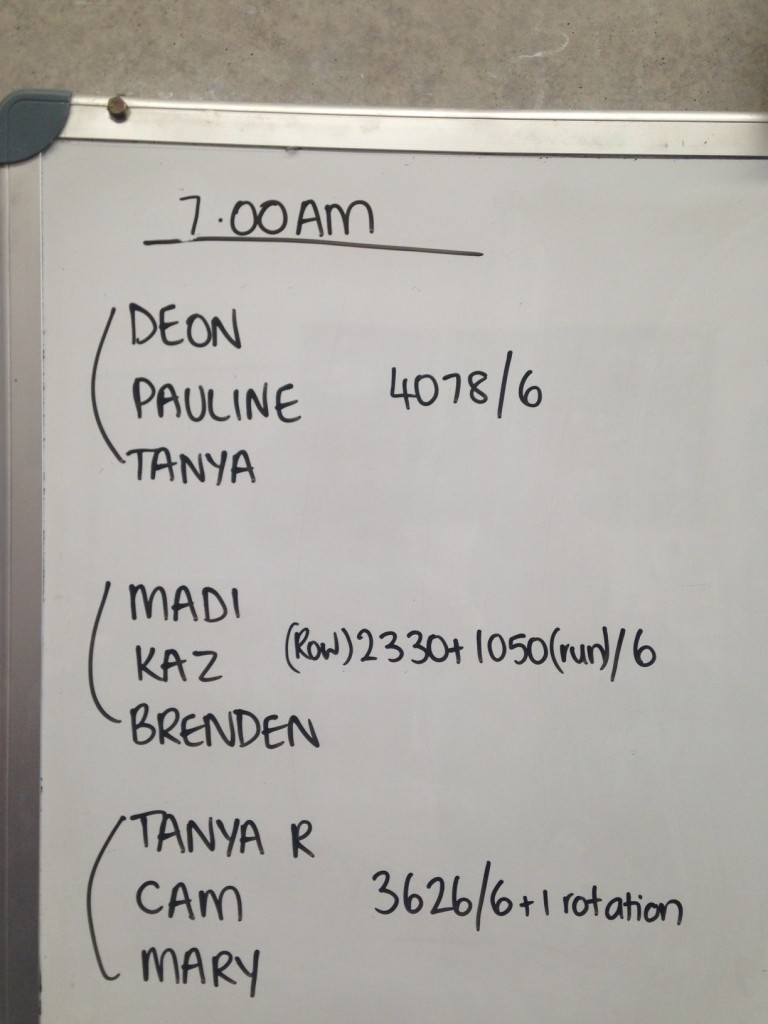 7.00AM
DEON
PAULINE 4078/6
TANYA
MADI
KAZ (Row)2330+1050(run)/6
BRENDEN
TANYA R
CAM 3626/6+1 rotation
MARY